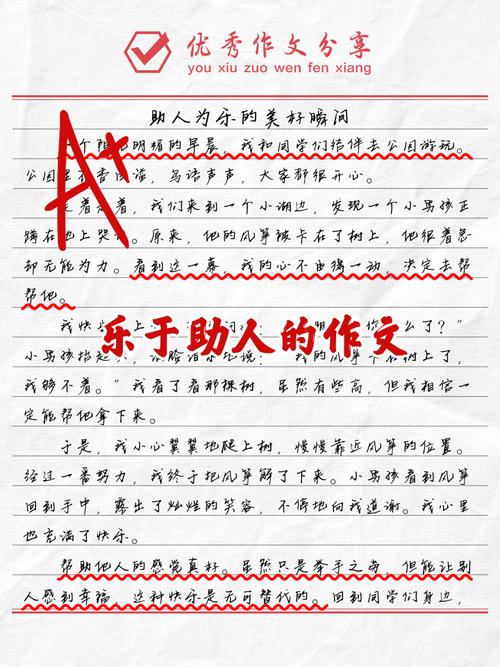 优秀作文分享
you xiu zuo wen fen xiang
助人为乐的美好瞬间
A+
个阳光明媚的早晨，我和同学们结伴去公园游玩。
公园里花香四溢，鸟语声声，大家都很开心。
走着走着，我们来到一个小湖边，发现一个小男孩正
蹲在地上哭泣。原来，他的风筝被卡在了树上，他很着急
却无能为力。看到这一幕，我的心不由得一动，决定去帮
帮他。
我快
上
你
么了？”
乐于助人的作文
小男孩抬起
说：
我的风筝卡在树上了，
我够不着。”我看了看那棵树，虽然有些高，但我相信一
定能帮他拿下来。
于是，我小心翼翼地爬上树，慢慢靠近风筝的位置。
经过一番努力，我终于把风筝解了下来。小男孩看到风筝
回到手中，露出了灿烂的笑容，不停地向我道谢。我心里
也充满了快乐。
帮助他人的感觉真好。虽然只是举手之劳，但能让别
人感到幸福，这种快乐是无可替代的。回到同学们身边，